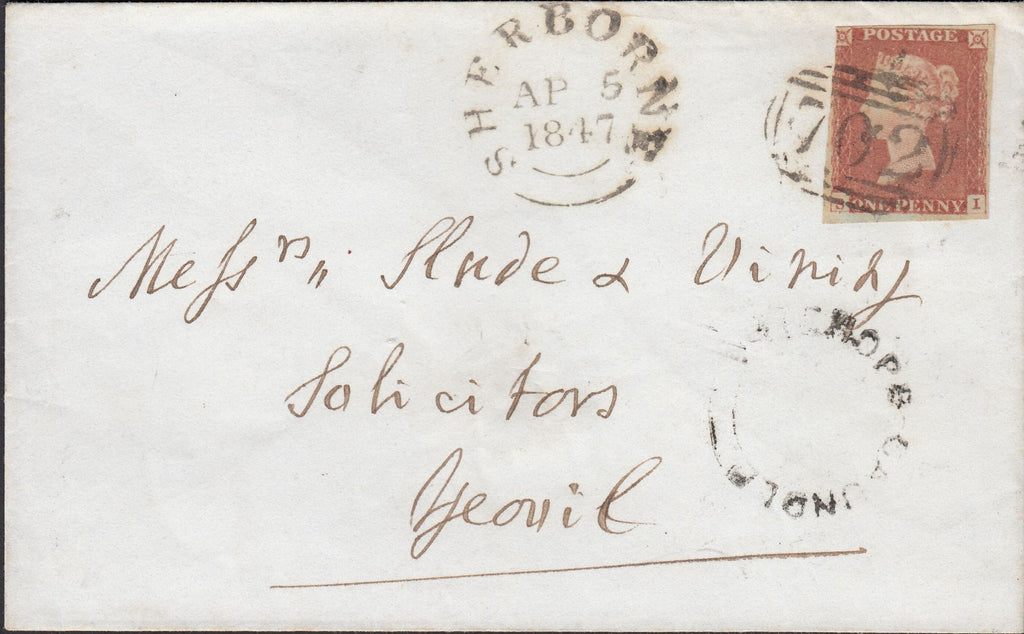 SHERBORNE
AP 5
1847
POSTAGE
702
ONE PENNY
I
Messrs,, Slade & Vining
Solicitors
Yeovil
CAUNDLE